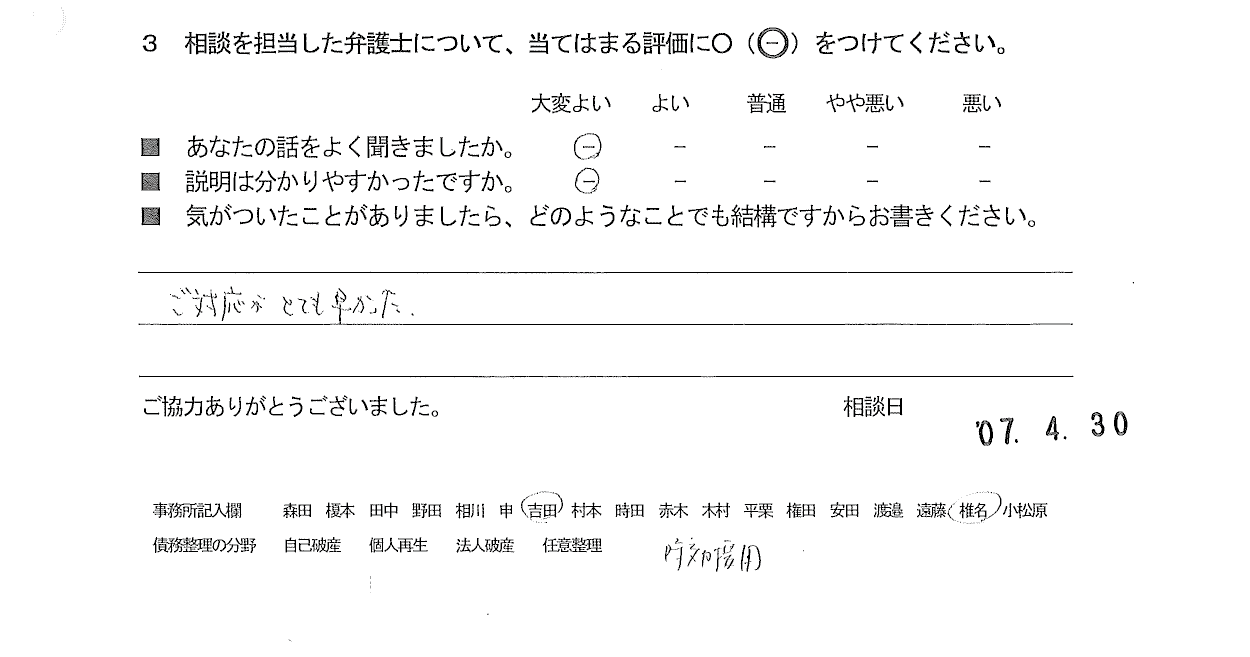 3 相談を担当した弁護士について、当てはまる評価に〇(㊀)をつけてください。
大変よい よい 普通 やや悪い 悪い
■ あなたの話をよく聞きましたか。 － － － － －
■ 説明は分かりやすかったですか。 － － － － －
■ 気がついたことがありましたら、どのようなことでも結構ですからお書きください。
ご対応がとても早かった.
ご協力ありがとうございました。 相談日
'07. 4. 30
事務所記入欄 森田 榎本 田中 野田 相川 申 吉田 村本 時田 赤木 木村 平栗 権田 安田 渡邉 遠藤 椎名 小松原
債務整理の分野 自己破産 個人再生 法人破産 任意整理 時効援用